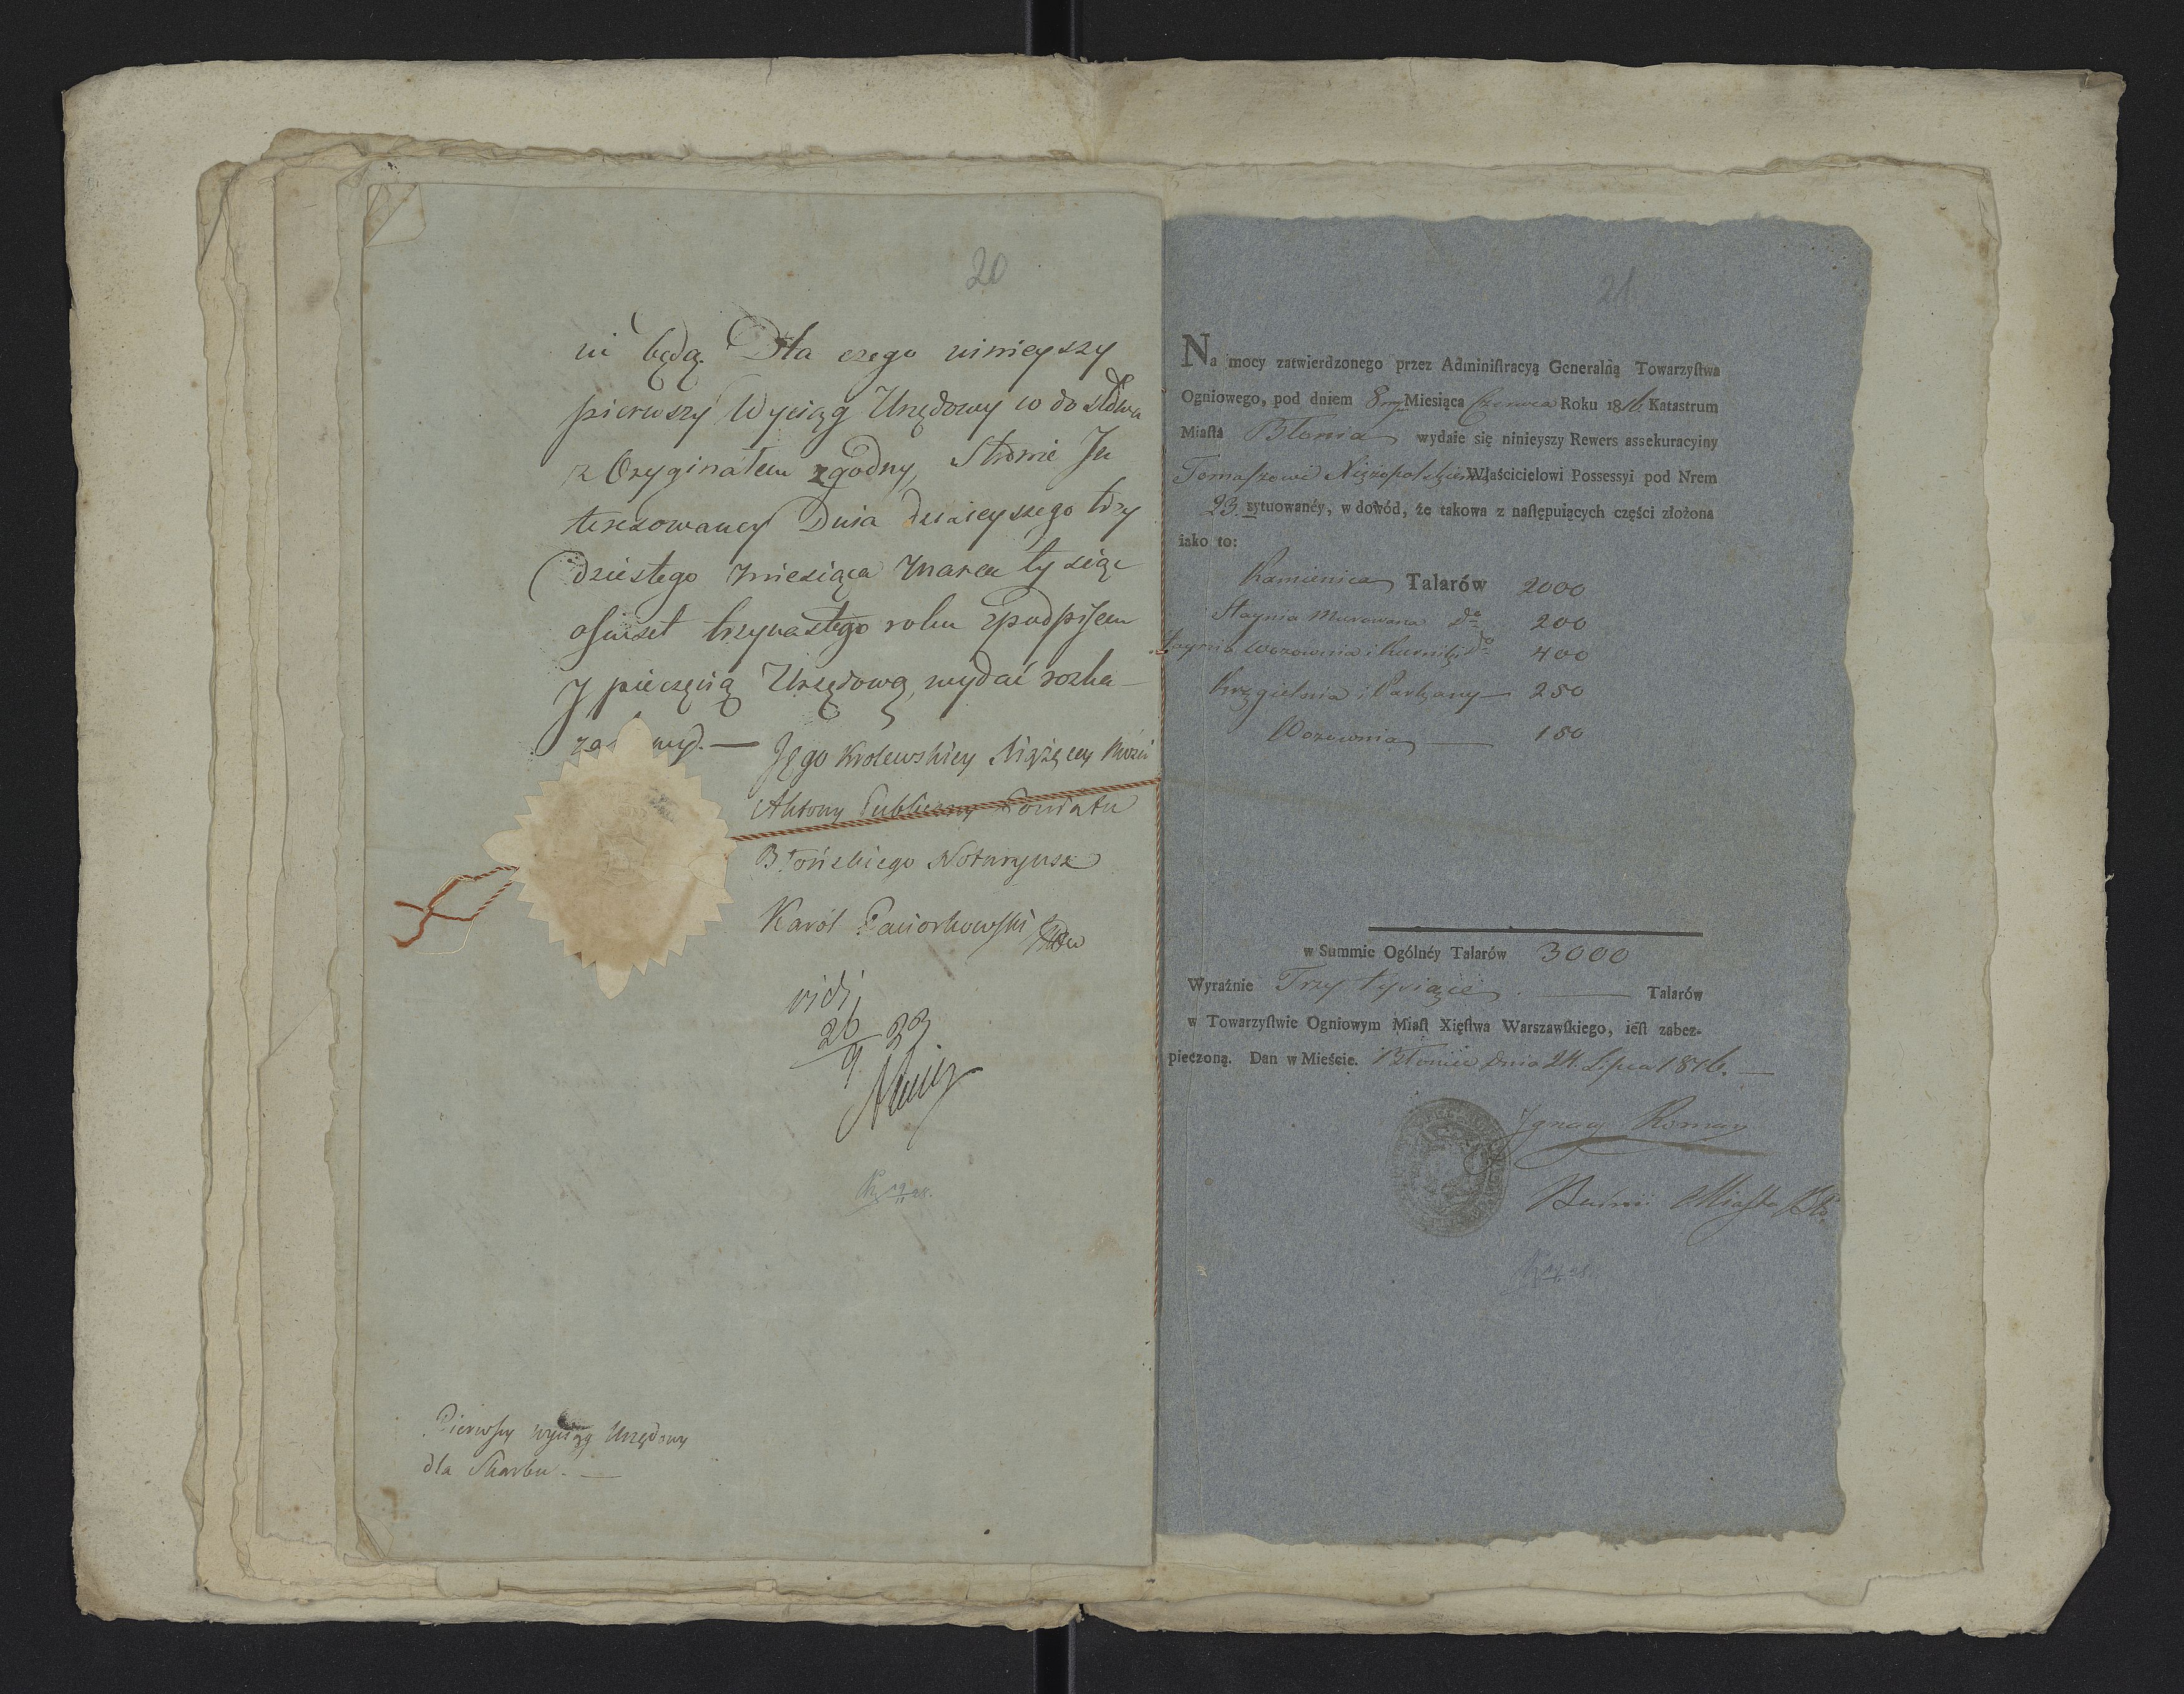 20
ni będą. Dla czego ninieyszy
pierwszy Wyciąg Urzędowy co do słowa
z Oryginałem zgodny, Stronie In
teressowaney Dnia dzisieyszego trzy
dziestego miesiąca Marca tysiąc
ośmset trzynastego roku z podpisem
y pieczęcią Urzędową, wydać rozka-
my. —
Jego Krolewskiey Xiążęcey Mości
Aktowy Publiczny Powiatu
Błońskiego Notaryusz
Karól Paciorkowski
vidi
20 33
9
Pierwszy wyciąg Urzędowy
dla Skarbu. —
21
Na mocy zatwierdzonego przez Adminiſtracyą Generalną Towarzyſtwa
Ogniowego, pod dniem 8 Miesiąca Czerwca Roku 1816 Katastrum
Miaſta Błonia wydaie się ninieyszy Rewers assekuracyiny
Tomaszowi Właścicielowi Possessyi pod Nrem
23. sytuowanéy, w dowód, że takowa z naſtępuiących części złożona
iako to:
Kamienica Talarów 2000
Staynia Murowana do 200
Wozownia i Kurniki do 400
Kręgielnia i Parkany — 250
Wozownia — 150
w Summie Ogólnéy Talarów 3000
Wyraźnie Trzy tysiące. — Talarów
w Towarzyſtwie Ogniowym Miaſt Xięſtwa Warszawſkiego, ieſt zabez-
pieczoną. Dan w Mieście. Błoniu Dnia 24. Lipca 1816. —
Ignacy Roman
Burm: Miasta Bło: